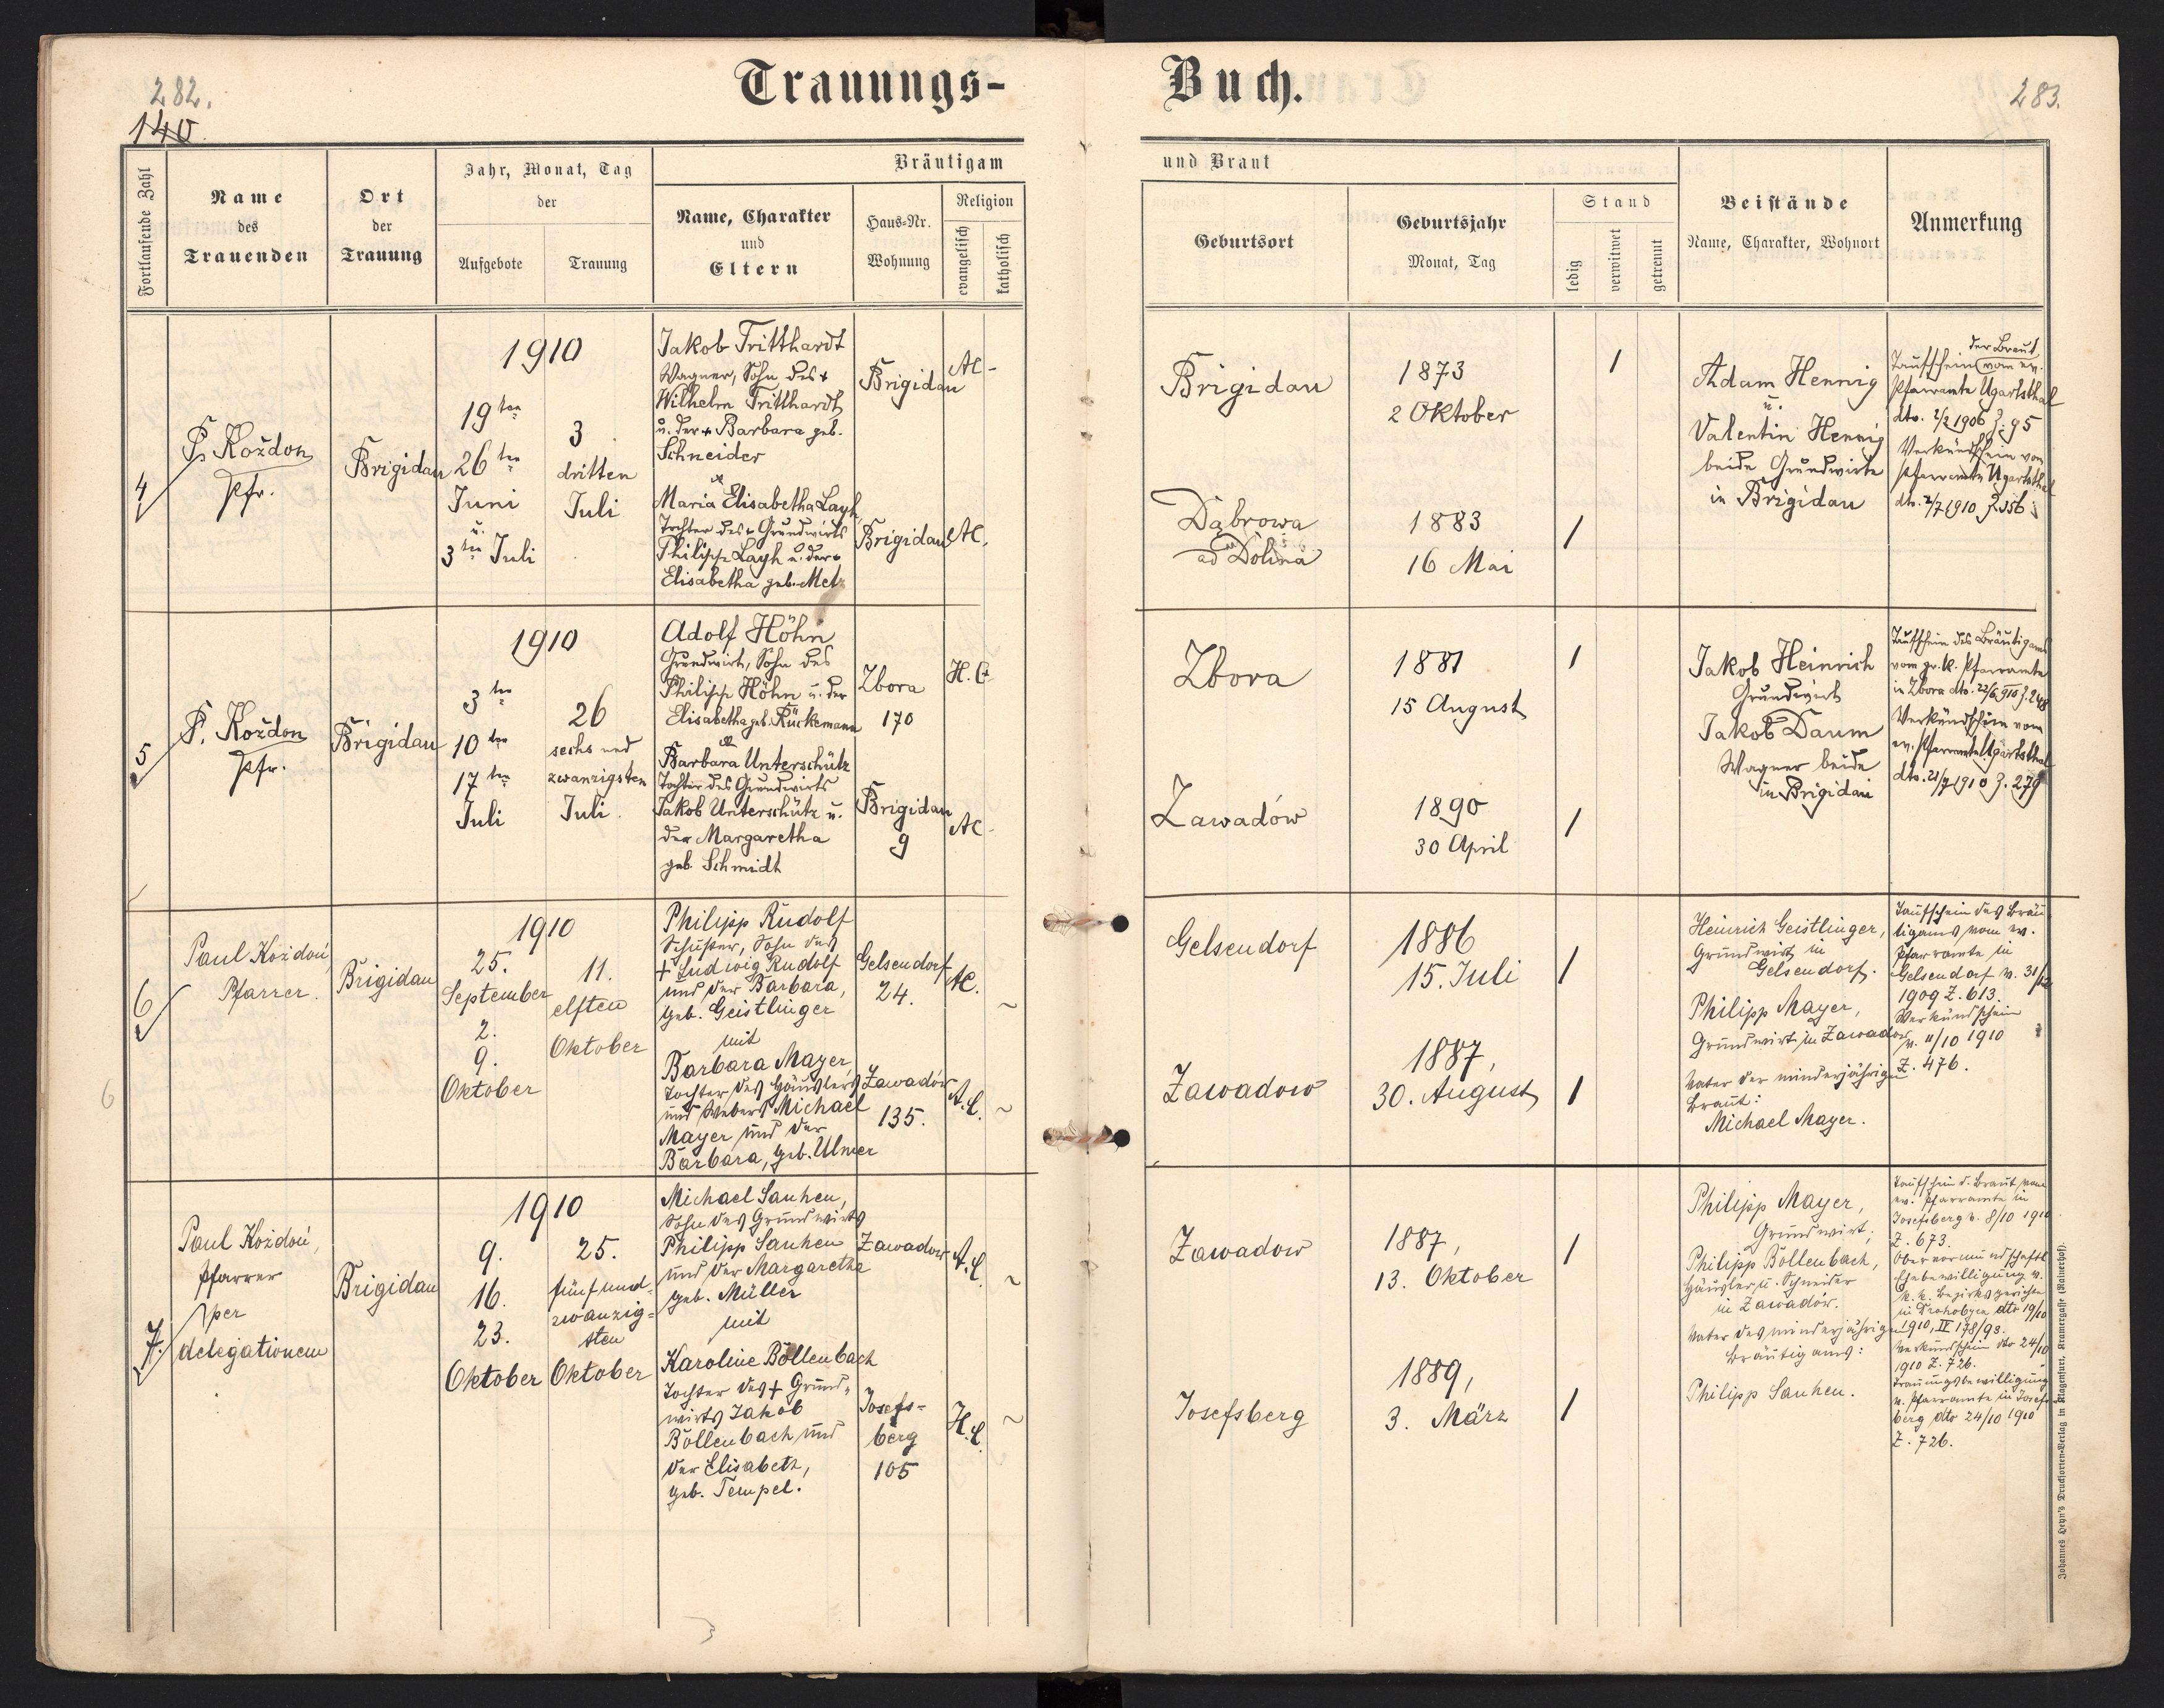 282.
140.
Trauungs-
Fortlaufende Zahl
Name
des
Trauenden
Ort
der
Trauung
Jahr, Monat, Tag
der
Aufgebote
Trauung
Bräutigam
Name, Charakter
und
Eltern
Haus-Nr.
Wohnung
Religion
evangelisch
katholisch
4
P. Kożdon
Pfr.
Brigidau
1910
19ten
26ten
Juni
u.
3ten Juli
3
dritten
Juli
Jakob Tritthardt
Wagner, Sohn des +
Wilhelm Tritthardt
u. der + Barbara geb.
Schneider
Maria Elisabetha Layh
Tochter des + Grundwirts
Philipp Layh u. der +
Elisabetha geb. Metz
Brigidau
AC.
Brigidau
AC.
5
P. Kożdon
Pfr.
Brigidau
1910
3ten
10ten
17ten
Juli
26
sechs und
zwanzigsten
Juli.
Adolf Höhn
Grundwirt, Sohn des
Philipp Höhn u. der
Elisabetha geb. Rückemann
Barbara Unterschütz
Tochter des Grundwirts
Jakob Unterschütz u.
der Margaretha
geb. Schmidt
Zbora
170
H.C.
Brigidau
9
AC.
6
Paul Kożdoń,
Pfarrer.
Brigidau
1910
25.
September
2.
9.
Oktober
11.
elften
Oktober
Philipp Rudolf
Schuster, Sohn des
+ Ludwig Rudolf
und der Barbara,
geb. Geistlinger
mit
Barbara Mayer,
Tochter des Häuslers
und Webers Michael
Mayer und der
Barbara, geb. Ulmer
Gelsendorf
24.
AC.
~
Zawadów
135.
A.C.
~
7.
Paul Kożdoń,
Pfarrer
per
delegationem
Brigidau
1910
9.
16.
23.
Oktober
25.
fünfund-
zwanzig-
sten
Oktober
Michael Sauhen,
Sohn des Grundwirts
Philipp Sauhen
und der Margaretha
geb. Müller
mit
Karoline Böllenbach
Tochter des + Grund-
wirts Jakob
Böllenbach und
der Elisabeth,
geb. Tempel.
Zawadow
A.C.
~
Josefs-
berg
105
H.C.
~
Buch.
283.
und Braut
Geburtsort
Geburtsjahr
Monat, Tag
Stand
ledig
verwitwet
getrennt
Beistände
Name, Charakter, Wohnort
Anmerkung
Brigidau
1873
2 Oktober
1
Dąbrowa
ad Dolina
1883
16 Mai
1
Adam Hennig
u.
Valentin Hennig
beide Grundwirte
in Brigidau
der Braut
Taufschein vom ev.
Pfarramte Ugartsthal
dto. 2/2 1906 Z. 95
Verkündschein vom
Pfarramte Ugartsthal
dto. 2/7 1910 Z. 356
Zbora
1881
15 August
1
Zawadów
1890
30 April
1
Jakob Heinrich
Grundwirt
Jakob Daum
Wagner beide
in Brigidau
Taufschein des Bräutigams
vom gr. k. Pfarramte
in Zbora dto. 22/6 910 Z. 248
Verkündschein vom
ev. Pfarramte Ugartsthal
dto. 21/7 1910 Z. 279
Gelsendorf
1886
15. Juli
1
Zawadow
1887,
30. August
1
Heinrich Geistlinger,
Grundwirt in
Gelsendorf.
Philipp Mayer,
Grundwirt in Zawadow
Vater der minderjährigen
Braut:
Michael Mayer.
Taufschein des Bräu
tigams vom ev.
Pfarramte in
Gelsendorf v. 31/12
1909 Z. 613.
Verkündschein
v. 11/10 1910
Z. 476.
Zawadow
1887,
13. Oktober
1
Josefsberg
1889,
3. März
1
Philipp Mayer,
Grundwirt;
Philipp Böllenbach,
Häusler u. Schneider
in Zawadów.
Vater des minderjährigen
Bräutigams:
Philipp Sauhen.
Taufschein d. Braut vom
ev. Pfarramte in
Josefsberg v. 8/10 1910
Z. 673.
Obervormundschaftl.
Ehebewilligung v.
k. k. Bezirksgerichte
in Drohobycz dto 19/10
1910, II 178/98.
Verkündschein dto 24/10
1910 Z. 726.
Trauungsbewilligung
v. Pfarramte in Josefs
berg dto 24/10 1910
Z. 726.
Johannes Heyn's Drucksorten-Verlag in Klagenfurt, Kramergasse (Rainerhof).